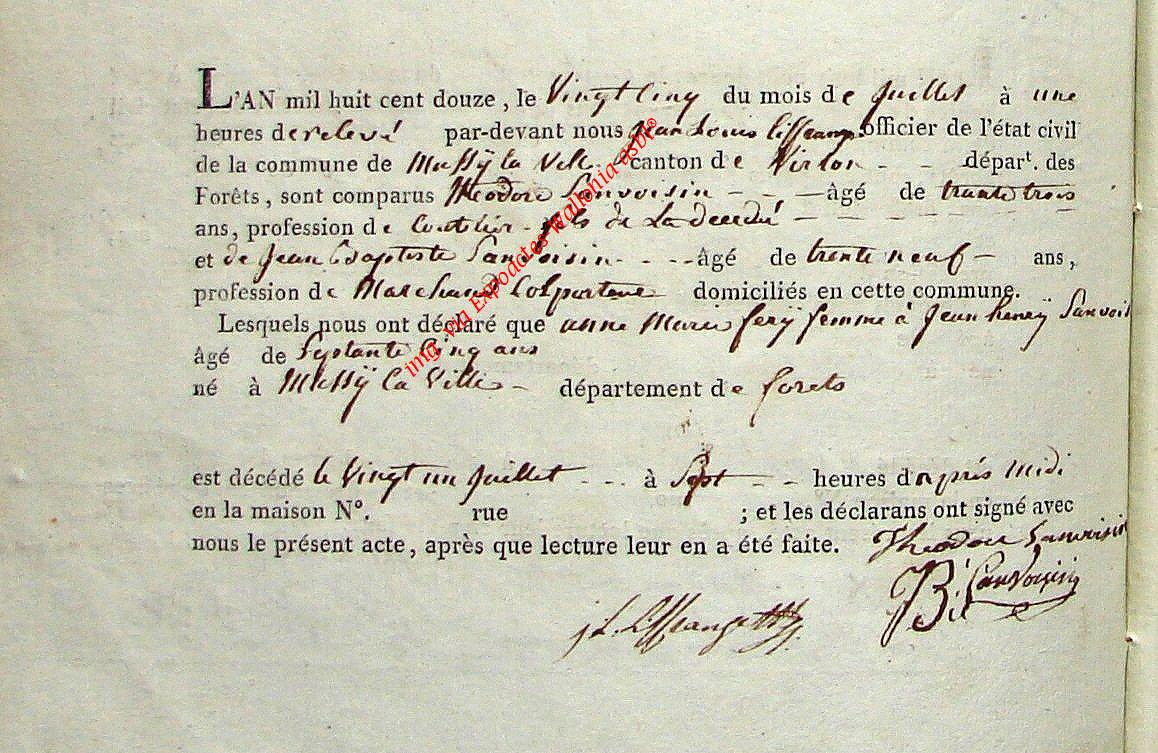 L'AN mil huit cent douze, le Vingt Cinq du mois de Juillet à une
heures de relevé par-devant nous Jean Louis officier de l'état civil
de la commune de Mussÿ la Ville canton de Virton - - départ. des
Forêts, sont comparus Theodore Sanvoisin - - - âgé de trente trois
ans, profession de fils de La decedé
et de Jean Baptiste Sanvoisin - - - - âgé de trente neuf - ans,
profession de Marchand Colporteur domiciliés en cette commune.
Lesquels nous ont déclaré que anne Marie ferÿ femme à Jean henrÿ Sanvoisin
âgé de Septante Cinq ans
né à Mussÿ la Ville - département de forets
est décédé le Vingt un Juillet - - - à Sept - - heures d'après midi
en la maison N°. rue ; et les déclarans ont signé avec
nous le présent acte, après que lecture leur en a été faite. Theodore Sanvoisin
JB Sanvoisin
img. via Expoactes Wallonia asbl®